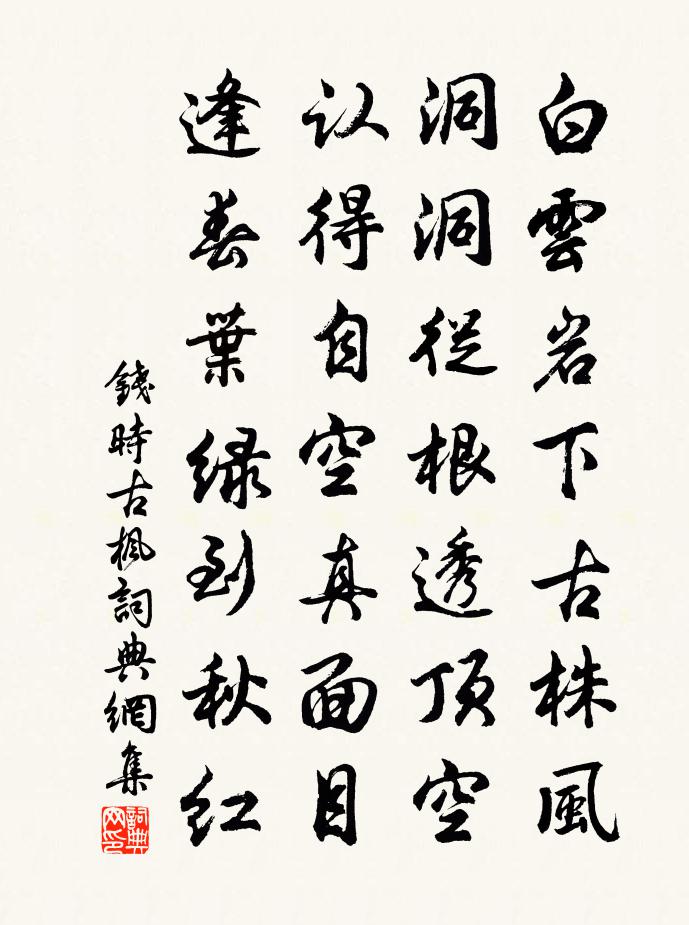 白雲岩下古株風
洞洞從根透頂空
认得自空真面目
逢春葉绿到秋红
錢時古楓詞典網集
詞典网印